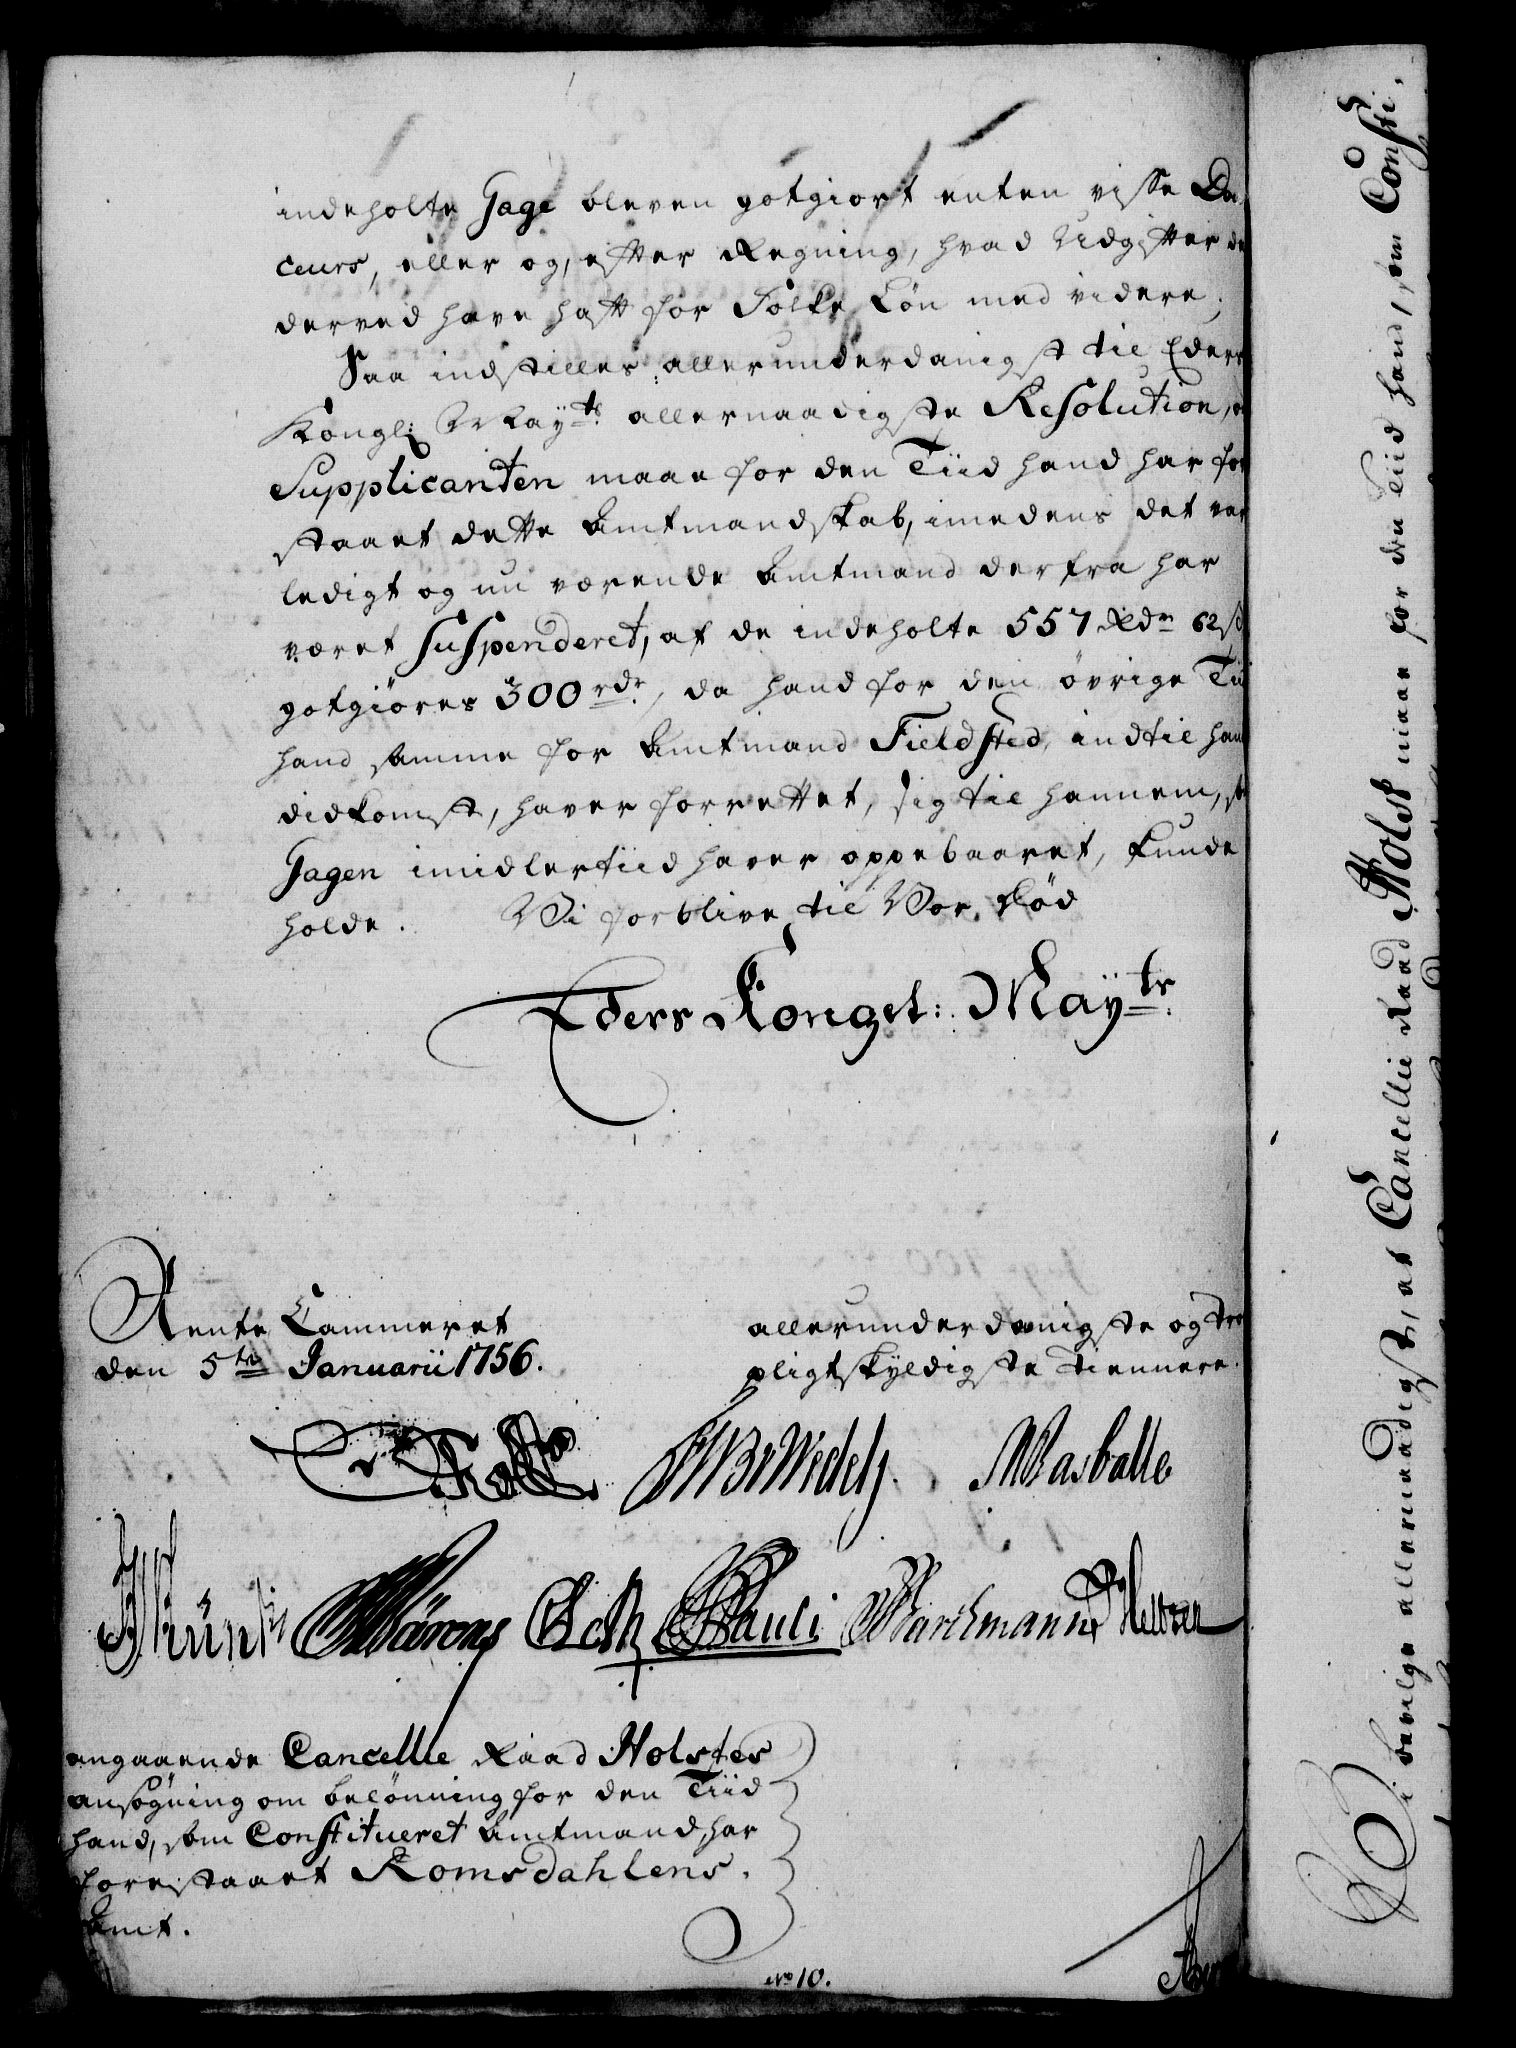 indeholte Gage bleven gotgiort enten visse Du,
ceurs, eller og, efter Regning, hvad Udgifter de
derved have haft for Folke Løn med videre;
Saa indstilles allerunderdanigst til Eders
Kongl: Mayts allernaadigste Resolution,
Supplicanten maae for den Tiid hand har for
staaet dette Amtmandskab, imedens det var
ledigt og nu værende Amtmand derfra har
været Suspenderet, af de indeholte 557 Rdr 62 s
gotgiøres 300 rdr, da hand for den øvrige Tii
hand samme for Amtmand Fieldsted, indtil hans
didkomst, haver forrettet, sig til hannem, so
Gagen imidlertiid haver oppebaaret, kunde
holde. Vi forblive til Vor Død
Eders Kongel: Mayts
Rente Cammeret
den 5te Januarii 1756.
allerunderdanigste og tro
pligtskyldigste Tiennere.
Holst
Wedell
Rasballe
Pauli
angaaende Cancellie Raad Holstes
ansøgning om belønning for den Tiid
hand, som Constitueret Amtmand, har
forestaaet Romsdahlens
Amt.
No 10.
Vi bevilge allernaadigst, at Cancellie Raad Holst maae for den Tiid hand, som Consti,